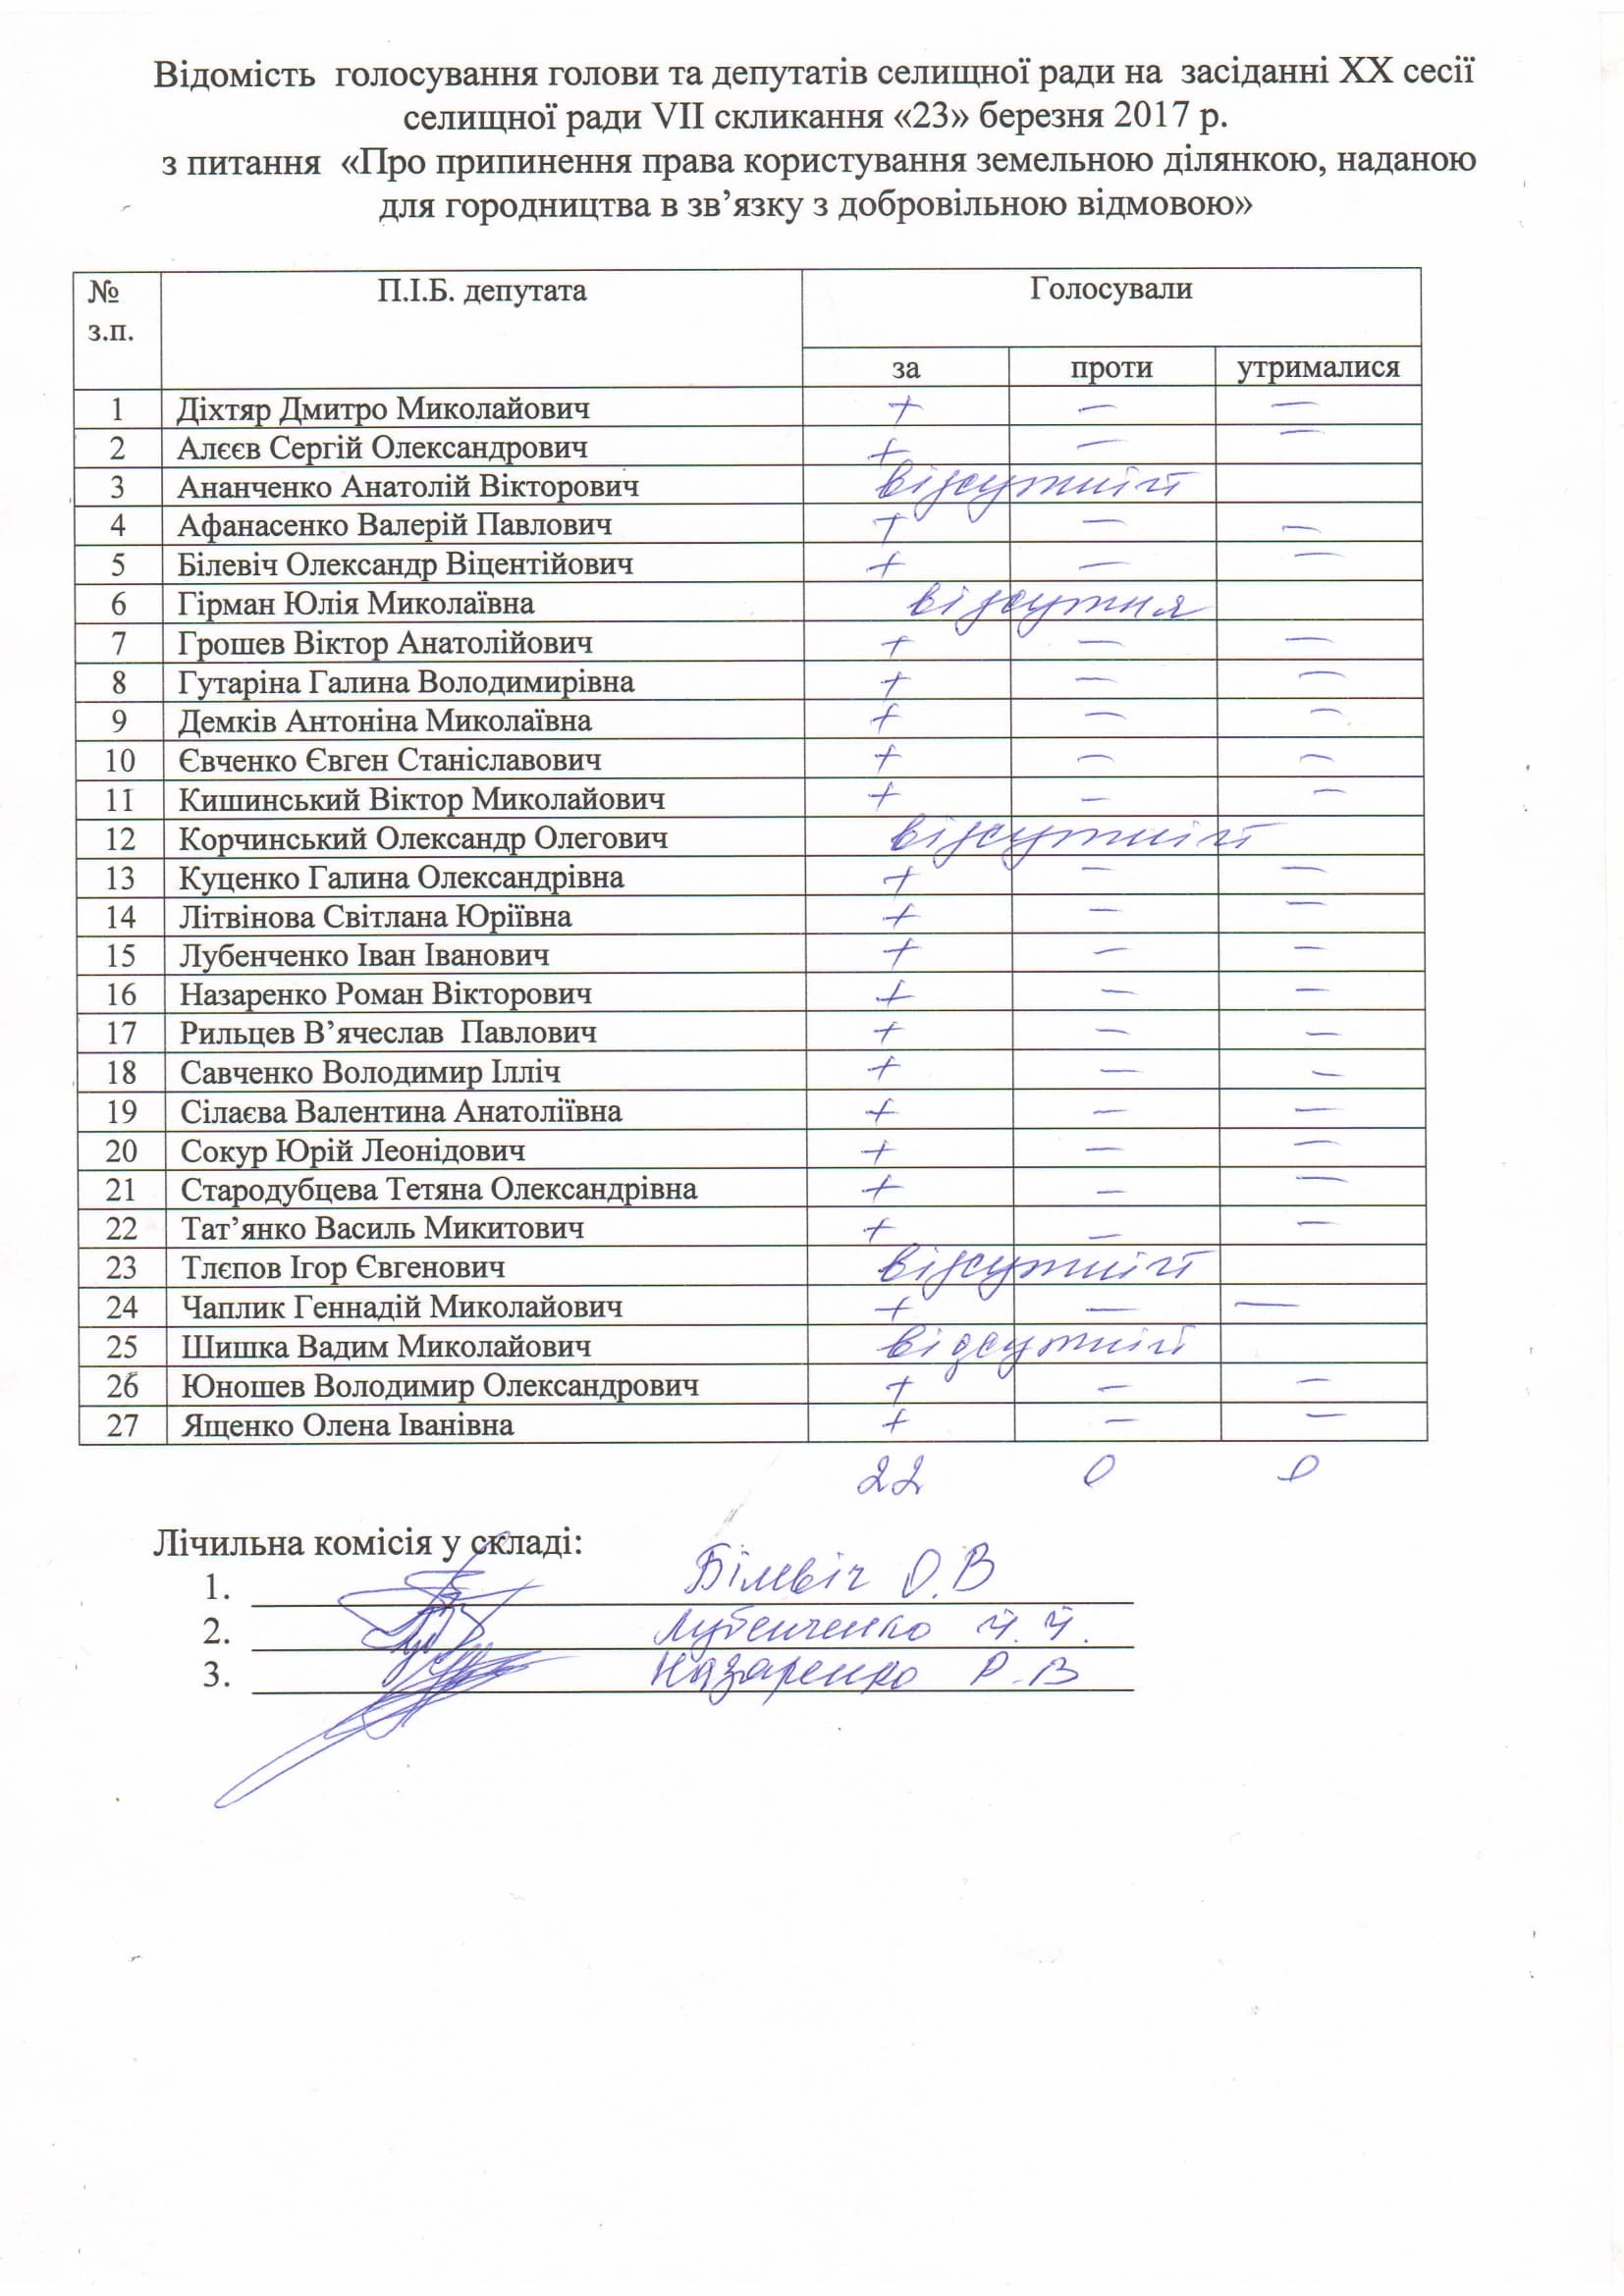 Відомість голосування голови та депутатів селищної ради на засіданні XX сесії
селищної ради VII скликання «23» березня 2017 р.
з питання «Про припинення права користування земельною ділянкою, наданою
для городництва в зв’язку з добровільною відмовою»
№ з.п. П.І.Б. депутата Голосували
за проти утрималися
1 Діхтяр Дмитро Миколайович + — —
2 Алєєв Сергій Олександрович + — —
3 Ананченко Анатолій Вікторович відсутній
4 Афанасенко Валерій Павлович + — —
5 Білевіч Олександр Віцентійович + — —
6 Гірман Юлія Миколаївна відсутня
7 Грошев Віктор Анатолійович + — —
8 Гутаріна Галина Володимирівна + — —
9 Демків Антоніна Миколаївна + — —
10 Євченко Євген Станіславович + — —
11 Кишинський Віктор Миколайович + — —
12 Корчинський Олександр Олегович відсутній
13 Куценко Галина Олександрівна + — —
14 Літвінова Світлана Юріївна + — —
15 Лубенченко Іван Іванович + — —
16 Назаренко Роман Вікторович + — —
17 Рильцев В’ячеслав Павлович + — —
18 Савченко Володимир Ілліч + — —
19 Сілаєва Валентина Анатоліївна + — —
20 Сокур Юрій Леонідович + — —
21 Стародубцева Тетяна Олександрівна + — —
22 Тат’янко Василь Микитович + — —
23 Тлєпов Ігор Євгенович відсутній
24 Чаплик Геннадій Миколайович + — —
25 Шишка Вадим Миколайович відсутній
26 Юношев Володимир Олександрович + — —
27 Ященко Олена Іванівна + — —
22 0 0
Лічильна комісія у складі:
1. Білевіч О.В
2. Лубенченко І.І.
3. Назаренко Р.В